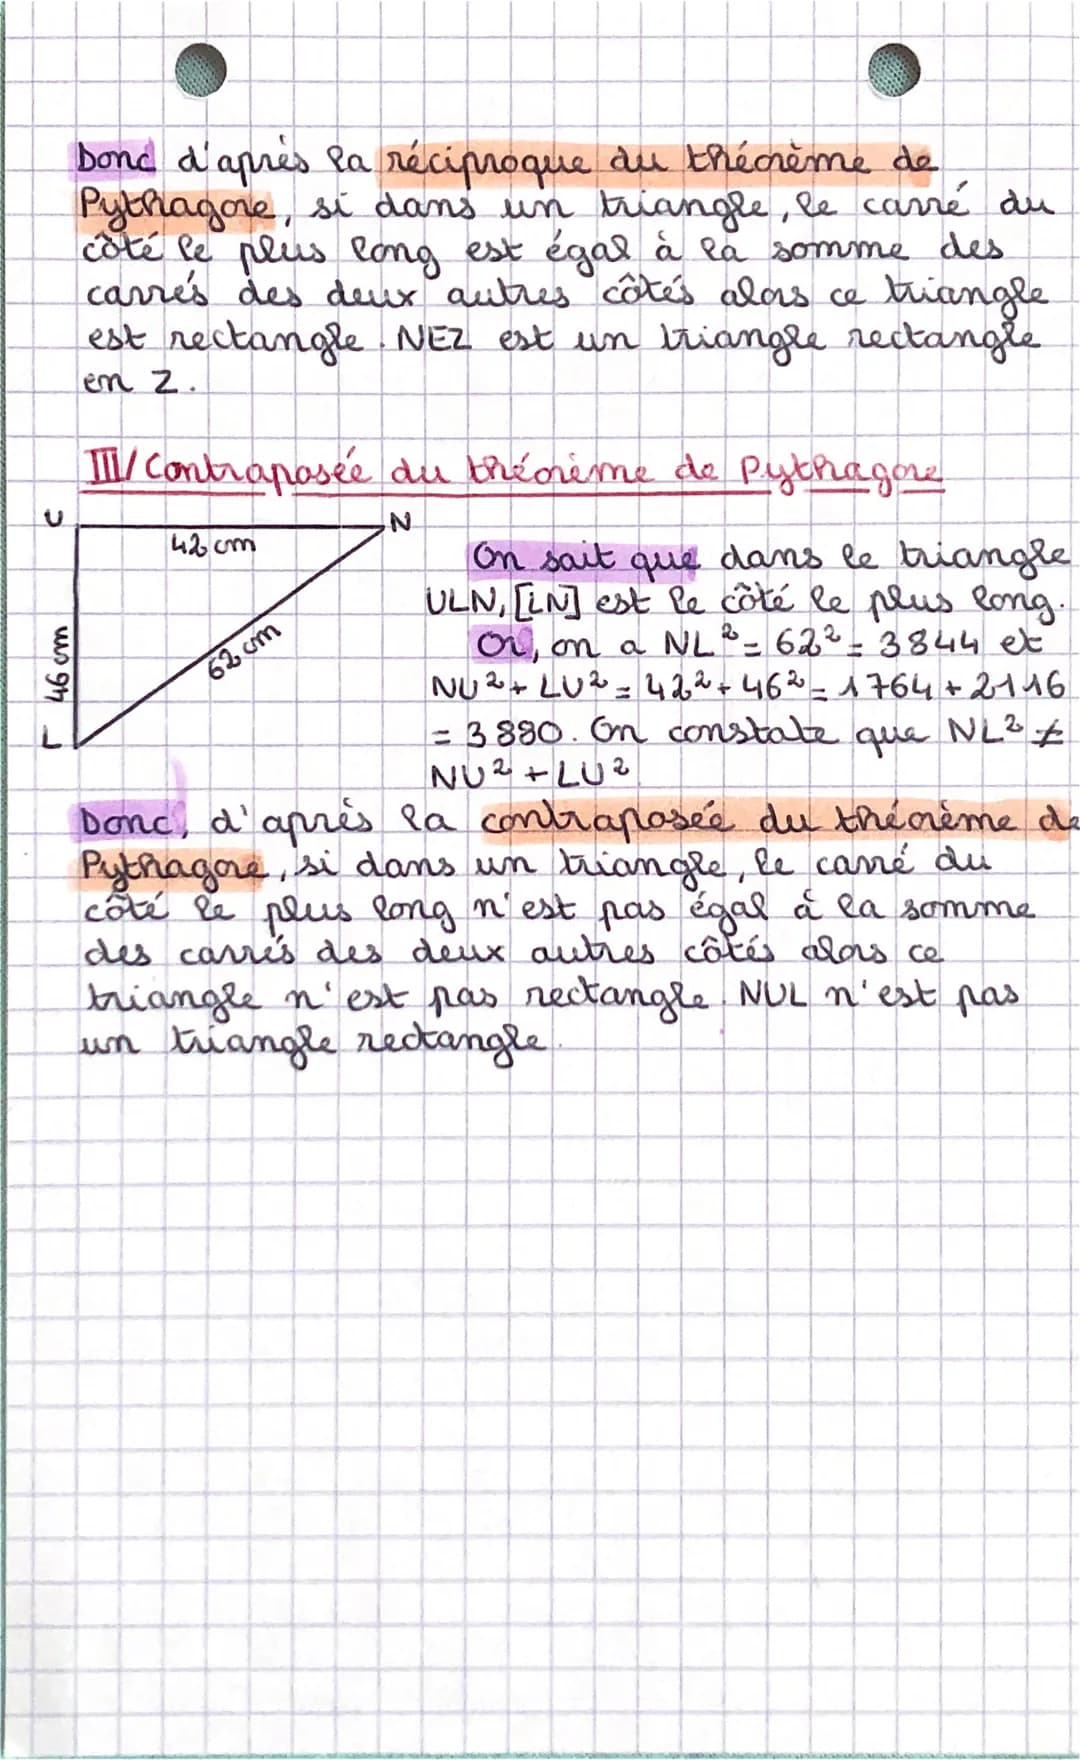 Donc d'après la réciproque du théorème de
Pythagore, si dans un triangle, le carré du
côté le plus long est égal à la somme des
carrés des deux autres côtés alors ce triangle
est rectangle. NEZ est un triangle rectangle
en Z.
III/ Contraposée du théorème de Pythagore
U
N
42 cm
46 cm
62 cm
L
On sait que dans le triangle
ULN, [LN] est le côté le plus long.
Or, on a NL² = 62² = 3844 et
NU² + LU² = 42² + 46² = 1764 + 2116
= 3880. On constate que NL² ≠
NU² + LU²
Donc, d'après la contraposée du théorème de
Pythagore, si dans un triangle, le carré du
côté le plus long n'est pas égal à la somme
des carrés des deux autres côtés alors ce
triangle n'est pas rectangle. NUL n'est pas
un triangle rectangle.